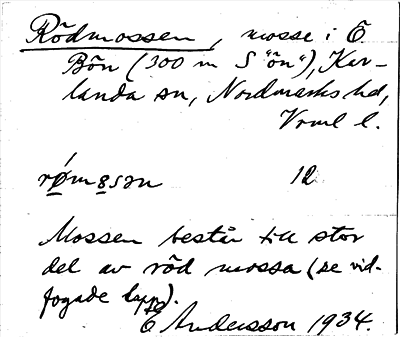 Rödmossen, mosse i Ö
Bön (300 m S "ön"), Kar-
landa sn, Nordmarks hd,
Vrml l.
rǿmåsən 12
Mossen består till stor
del av röd mossa (se vid-
fogade lapp).
E Andersson 1934.